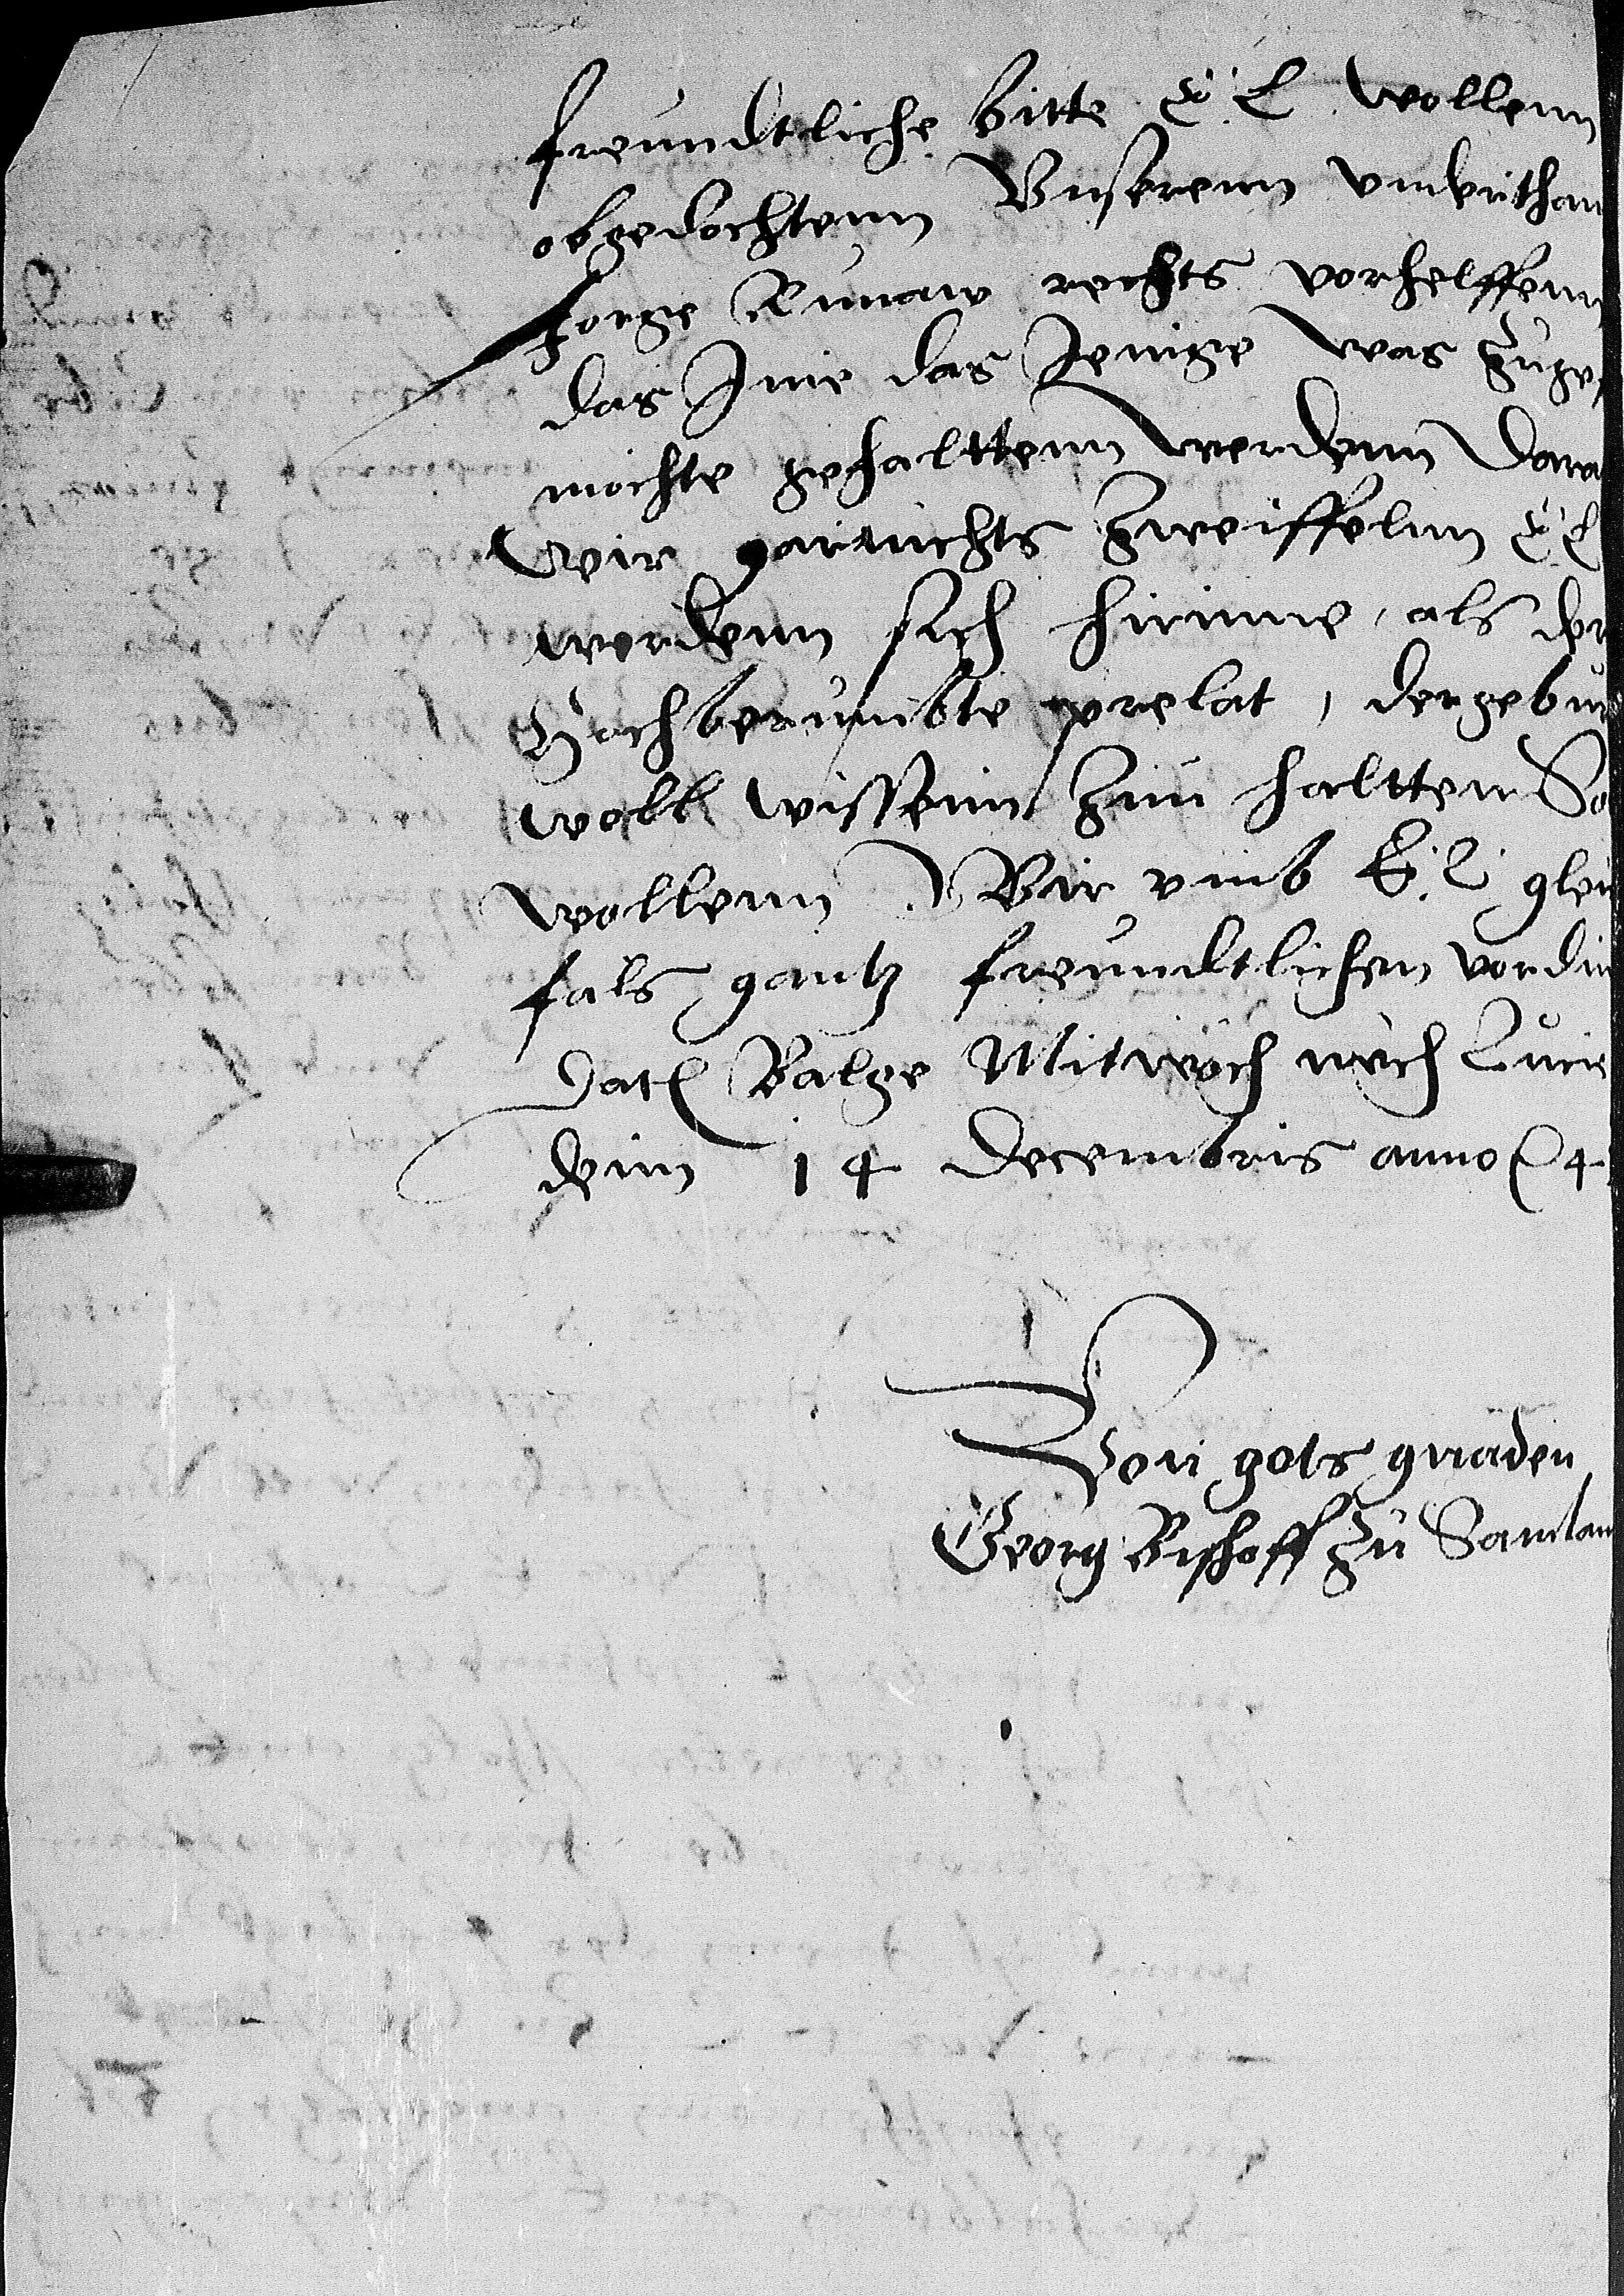 freundtliche bitte E L wollenn
obgedochtenn Vnserenn vnderthan
Jorge Kunaw rechts vorhelffenn
das Ime das Jenige was zuge
mochte gehalttenn werdenn Dara
Wir garnichts Zweiffelnn E L
werdenn sich hirinne, als der
Hochberumbte prelat, der gebur
woll wissenn zuu haltten So
wollenn Wir vmb E. L. glei
fals gantz freundtlichen vordin
Dat Balge Mitwoch nach Lucie
denn 14 Decembris anno 4
Von gots gnaden
Georg Bischoff zu Samlan